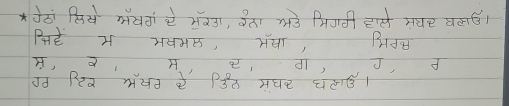 * ਹੇਠਾਂ ਲਿਖੇ ਅੱਖਰਾਂ ਦੇ ਮੁੱਕਤਾ, ਕੰਨਾ ਅਤੇ ਸਿਹਾਰੀ ਵਾਲੇ ਸ਼ਬਦ ਬਣਾਓ।
ਜਿਵੇਂ ਮ ਮਖਮਲ, ਮੱਥਾ, ਮਿਰਚ
ਸ਼, ਕ, ਸ, ਦ, ਗ, ਹ, ਰ
ਹਰ ਇਕ ਅੱਖਰ ਦੇ ਤਿੰਨ ਸ਼ਬਦ ਬਣਾਓ।